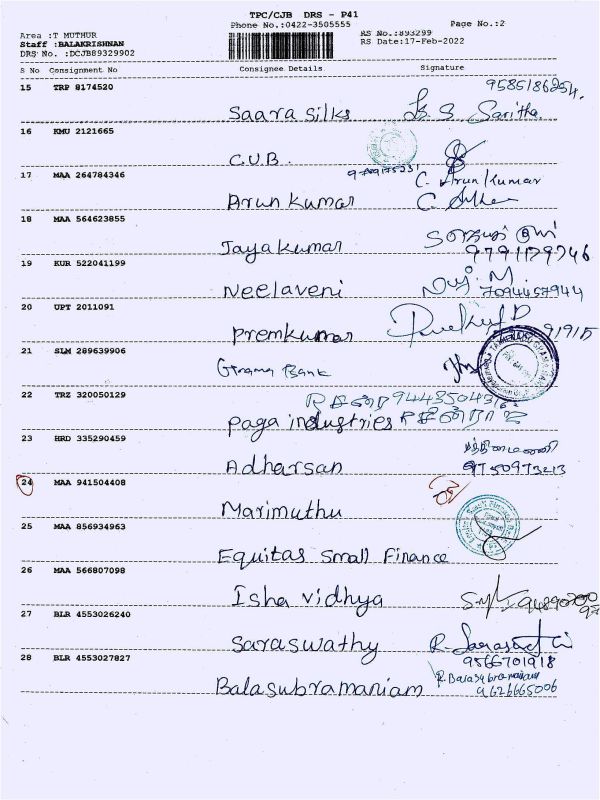 TPC/CJB DRS - P41
Phone No.:0422-3505555
Page No.:2
Area :T MUTHUR
RS No.:893299
Staff :BALAKRISHNAN
RS Date:17-Feb-2022
DRS No. :DCJB89329902
S No Consignment No Consignee Details Signature
15 TRP 8174520
9585186254.
Saara Silks S. Saritha
16 KMU 2121665
C.U.B.
17 MAA 264784346
C. Arun Kumar
Arun Kumar
18 MAA 564623855
Jaya Kumar
19 KUR 522041199
Neelaveni 7094457944
20 UPT 2011091
Prem Kumar
21 SLM 289639906
Grama Bank
22 TRZ 320050129
Paga industries
23 HRD 335290459
Adharsan 9750973213
24 MAA 941504408
Marimuthu
25 MAA 856934963
Equitas Small Finance
26 MAA 566807098
Isha vidhya
27 BLR 4553026240
Saraswathy
9566701918
28 BLR 4553027827
R. Balasubramaniam
Balasubramaniam 9626665006